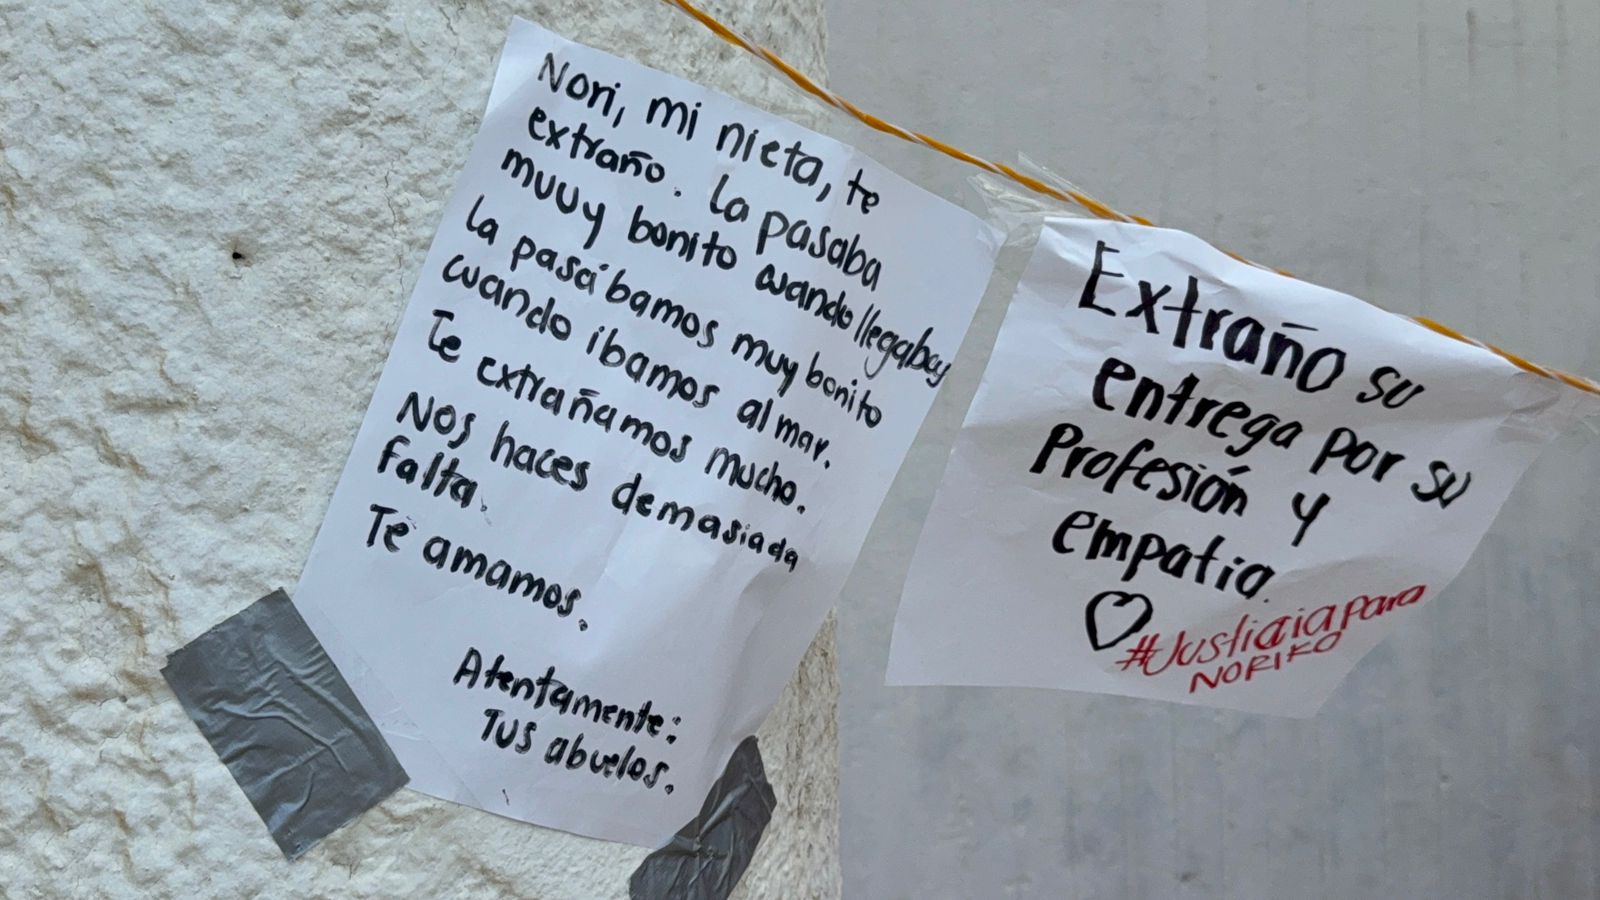 Nori, mi nieta, te
extraño. La pasaba
muuy bonito cuando llegabas
La pasábamos muy bonito
cuando íbamos al mar.
Te extrañamos mucho.
Nos haces demasiada
falta.
Te amamos.
Atentamente:
Tus abuelos.
Extraño su
entrega por su
Profesión y
empatia.
#Justiciapara
NORIKO